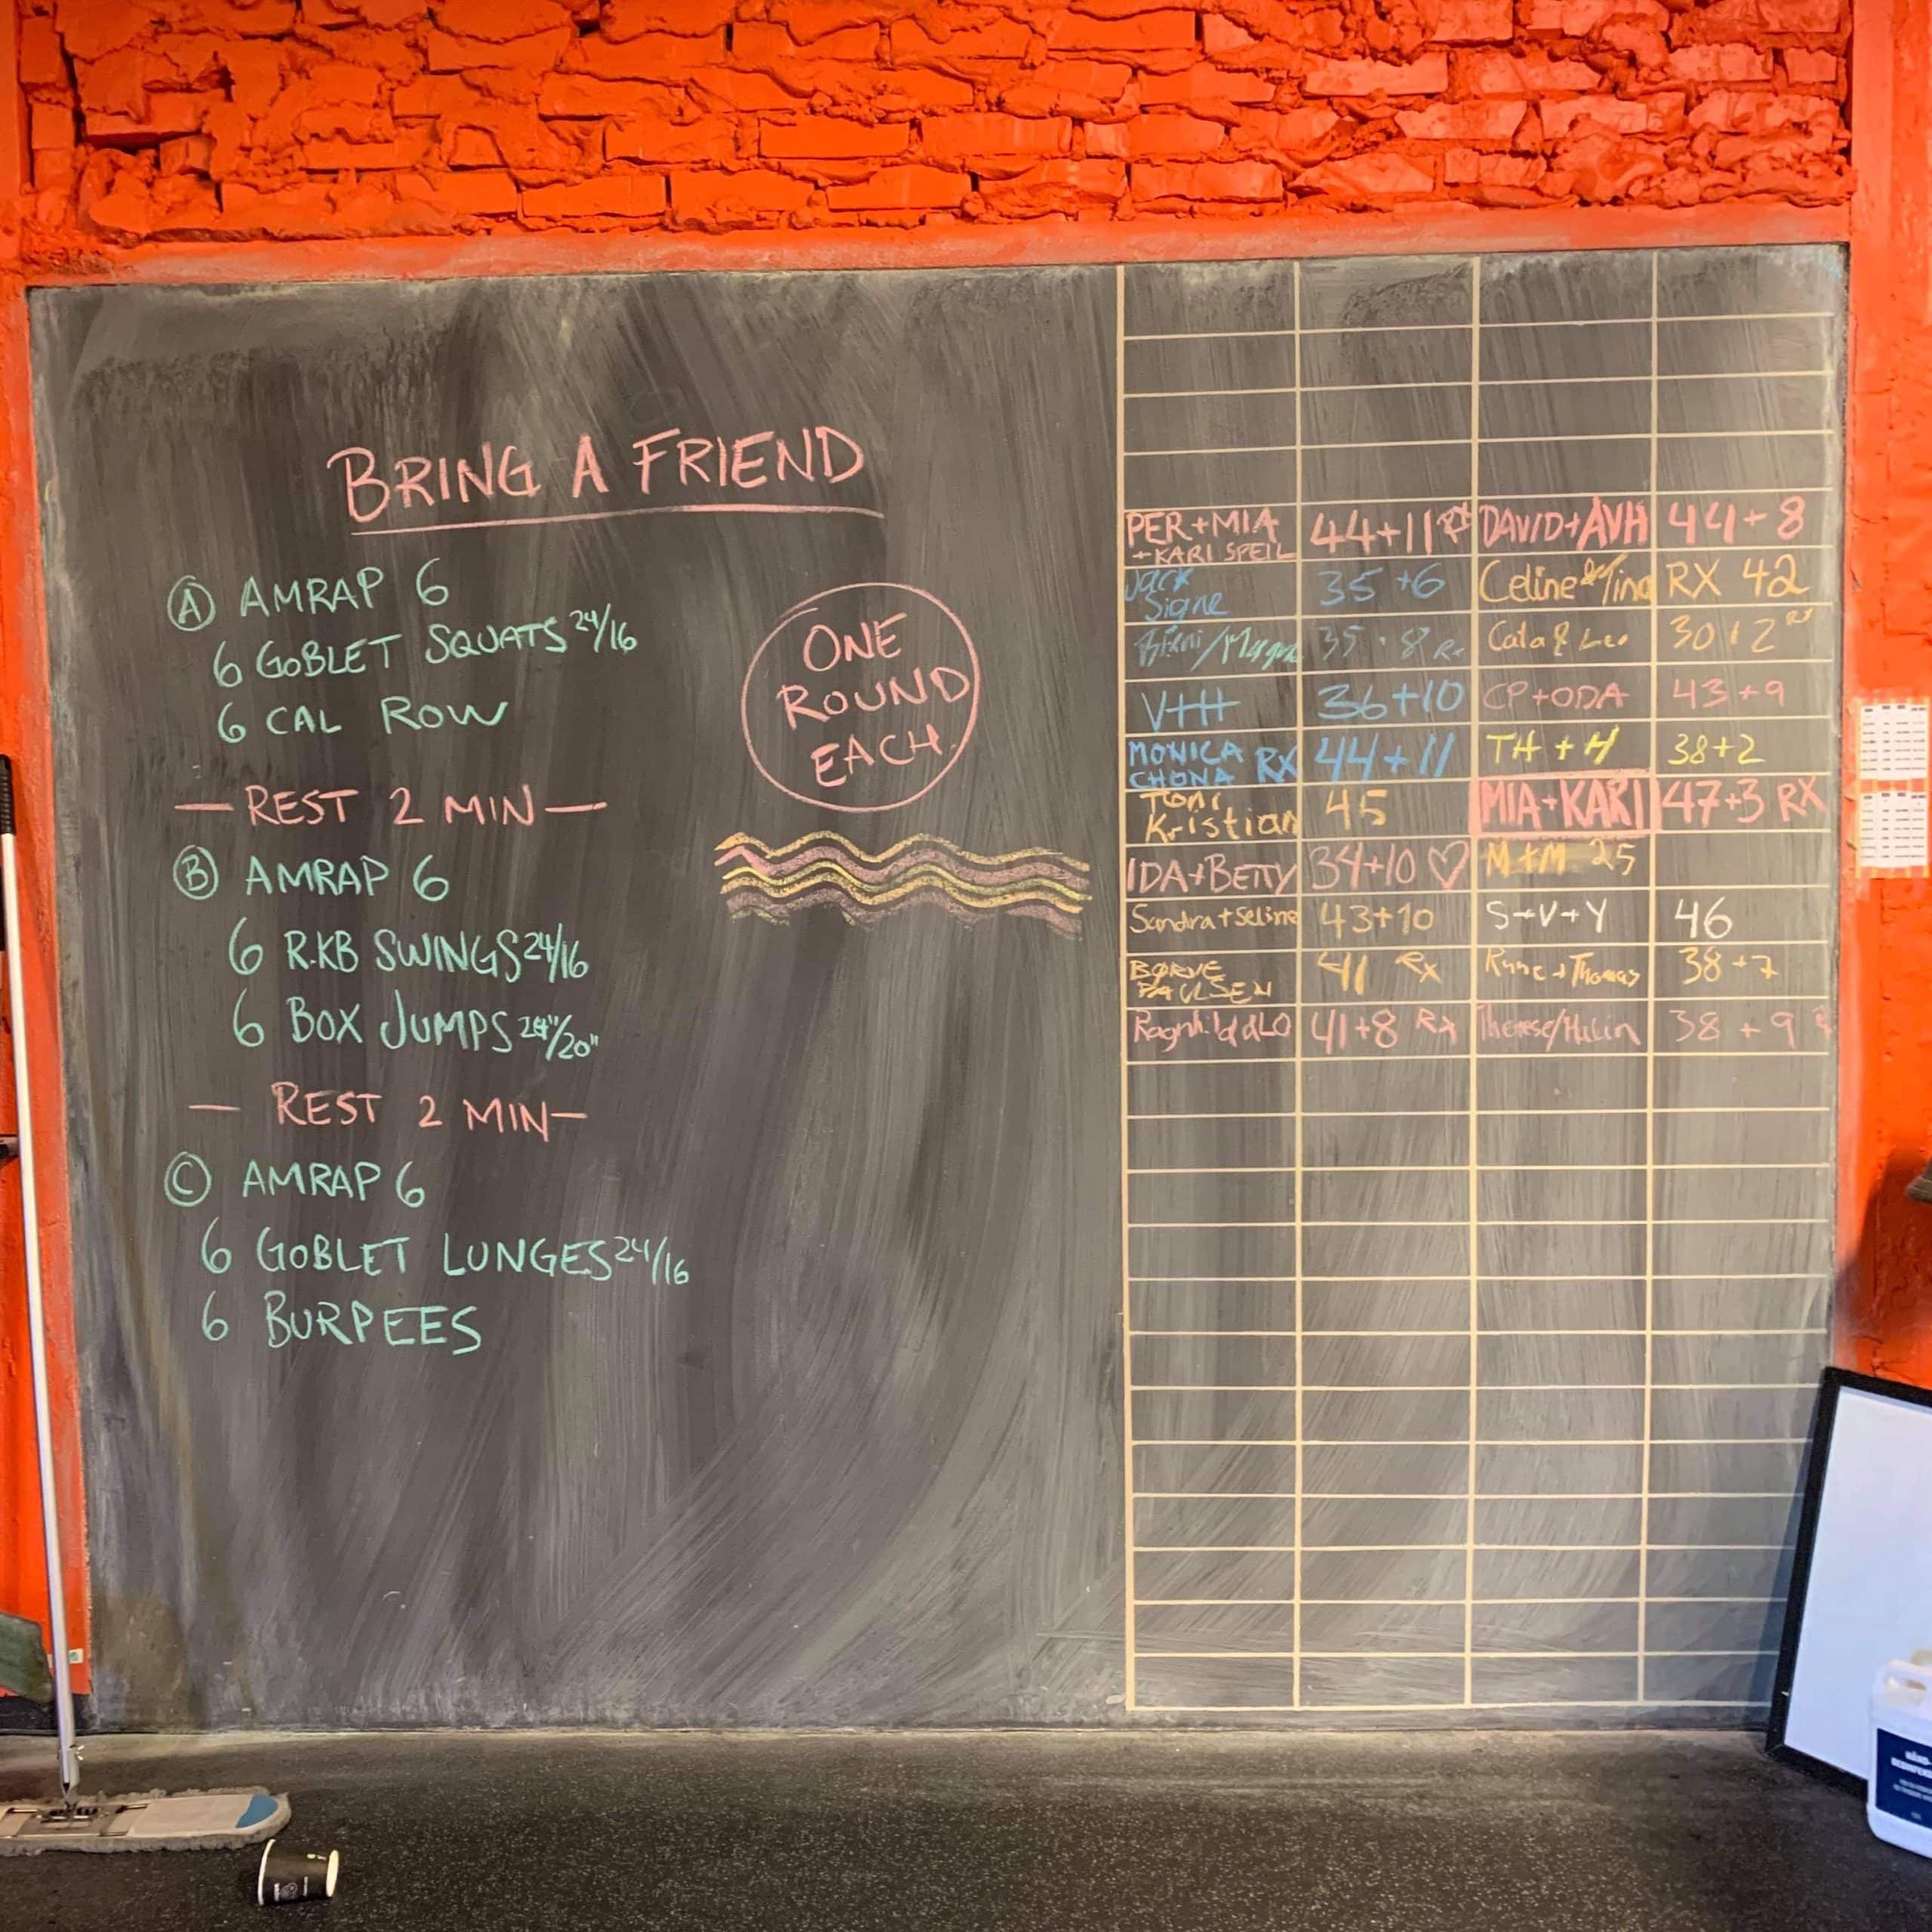 BRING A FRIEND
Ⓐ AMRAP 6
6 GOBLET SQUATS 24/16
6 CAL ROW
— REST 2 MIN —
Ⓑ AMRAP 6
6 R.KB SWINGS 24/16
6 BOX JUMPS 24"/20"
— REST 2 MIN —
Ⓒ AMRAP 6
6 GOBLET LUNGES 24/16
6 BURPEES
ONE
ROUND
EACH.
PER+MIA 44+11 RX DAVID+AVH 44+8
+KARI SPEIL
Jack
Signe 35+6 Celine & Tina RX 42
35+8 Rx & Leo 30+2 RX
V+H 36+10 CP+ODA 43+9
MONICA
CHONA RX 44+11 TH+H 38+2
Toni
Kristian 45 MIA+KARI 47+3 RX
IDA+BETTY 34+10 ♡ M+M 25
Sandra+Seline 43+10 S+V+Y 46
BØRVE
PAULSEN 41 Rx Rune+Thomas 38+7
Ragnhild & LO 41+8 Rx Therese/Malin 38+9